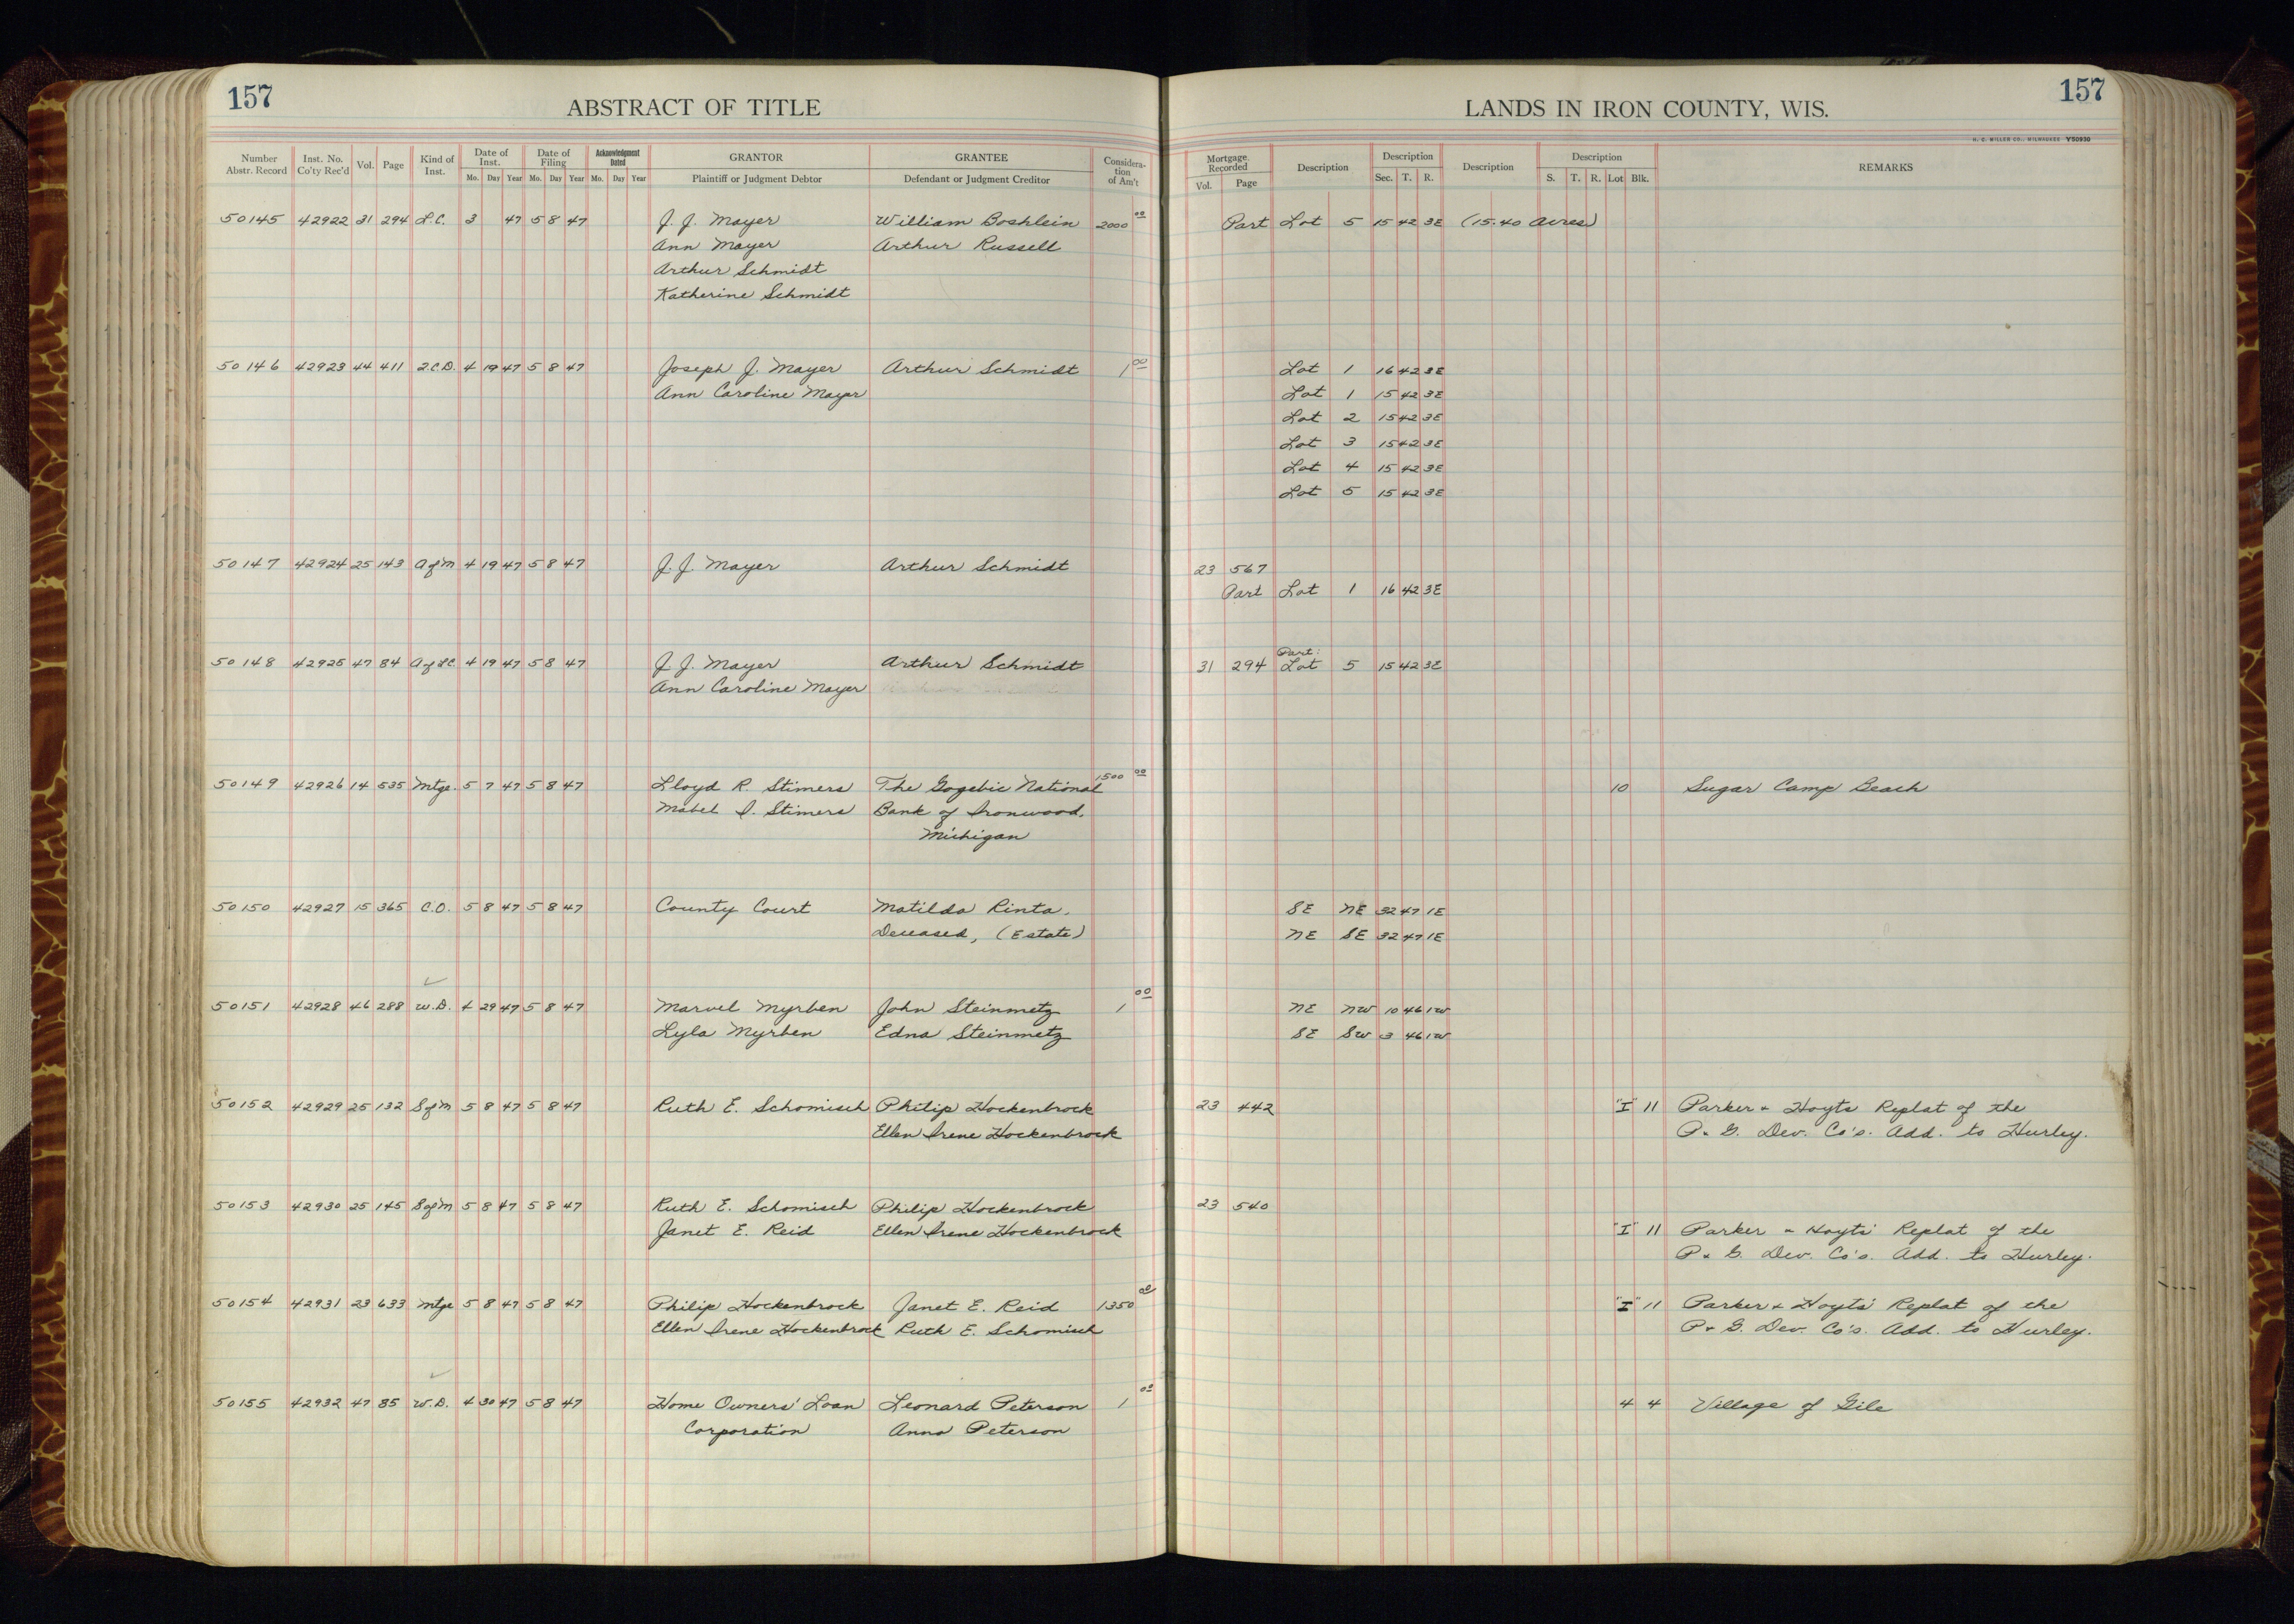 157
ABSTRACT OF TITLE
LANDS IN IRON COUNTY, WIS.
157
H. C. MILLER CO., MILWAUKEE Y50930
Number Abstr. Record Inst. No. Co'ty Rec'd Vol. Page Kind of Inst. Date of Inst. Mo. Day Year Date of Filing Mo. Day Year Acknowledgment Dated Mo. Day Year GRANTOR Plaintiff or Judgment Debtor GRANTEE Defendant or Judgment Creditor Consideration of Am't Mortgage Recorded Vol. Page Description Description Sec. T. R. Description Description S. T. R. Lot Blk. REMARKS
50145 42922 31 294 L.C. 3 47 5 8 47 J. J. Mayer William Boshlein 2000 00 Part Lot 5 15 42 3E (15.40 acres)
Ann Mayer Arthur Russell
Arthur Schmidt
Katherine Schmidt
50146 42923 44 411 2.C.D. 4 19 47 5 8 47 Joseph J. Mayer Arthur Schmidt 1 00 Lot 1 16 42 3E
Ann Caroline Mayer Lot 1 15 42 3E
Lot 2 15 42 3E
Lot 3 15 42 3E
Lot 4 15 42 3E
Lot 5 15 42 3E
50147 42924 25 143 A of M 4 19 47 5 8 47 J. J. Mayer Arthur Schmidt 23 567
Part Lot 1 16 42 3E
Part:
50148 42925 47 84 A of LC 4 19 47 5 8 47 J. J. Mayer Arthur Schmidt 31 294 Lot 5 15 42 3E
Ann Caroline Mayer
50149 42926 14 535 Mtge. 5 7 47 5 8 47 Lloyd R. Stimers The Gogebic National 1500 00 10 Sugar Camp Beach
Mabel I. Stimers Bank of Ironwood,
Michigan
50150 42927 15 365 C.O. 5 8 47 5 8 47 County Court Matilda Rinta, SE NE 32 47 1E
Deceased, (Estate) NE SE 32 47 1E
50151 42928 46 288 W.D. 4 29 47 5 8 47 Marvel Myrben John Steinmetz 1 00 NE NW 10 46 1W
Lyla Myrben Edna Steinmetz SE SW 3 46 1W
50152 42929 25 132 S of M 5 8 47 5 8 47 Ruth E. Schomisch Philip Hockenbrock 23 442 "I" 11 Parker & Hoyts Replat of the
Ellen Irene Hockenbrock P. & G. Dev. Co's. Add. to Hurley.
50153 42930 25 145 S of M 5 8 47 5 8 47 Ruth E. Schomisch Philip Hockenbrock 23 540
Janet E. Reid Ellen Irene Hockenbrock "I" 11 Parker & Hoyts' Replat of the
P & G. Dev. Co's. Add. to Hurley.
50154 42931 23 633 Mtge 5 8 47 5 8 47 Philip Hockenbrock Janet E. Reid 1350 00 "I" 11 Parker & Hoyts' Replat of the
Ellen Irene Hockenbrock Ruth E. Schomisch P & G. Dev. Co's. Add. to Hurley.
50155 42932 47 85 W.D. 4 30 47 5 8 47 Home Owners' Loan Leonard Peterson 1 00 4 4 Village of Gile
Corporation Anna Peterson